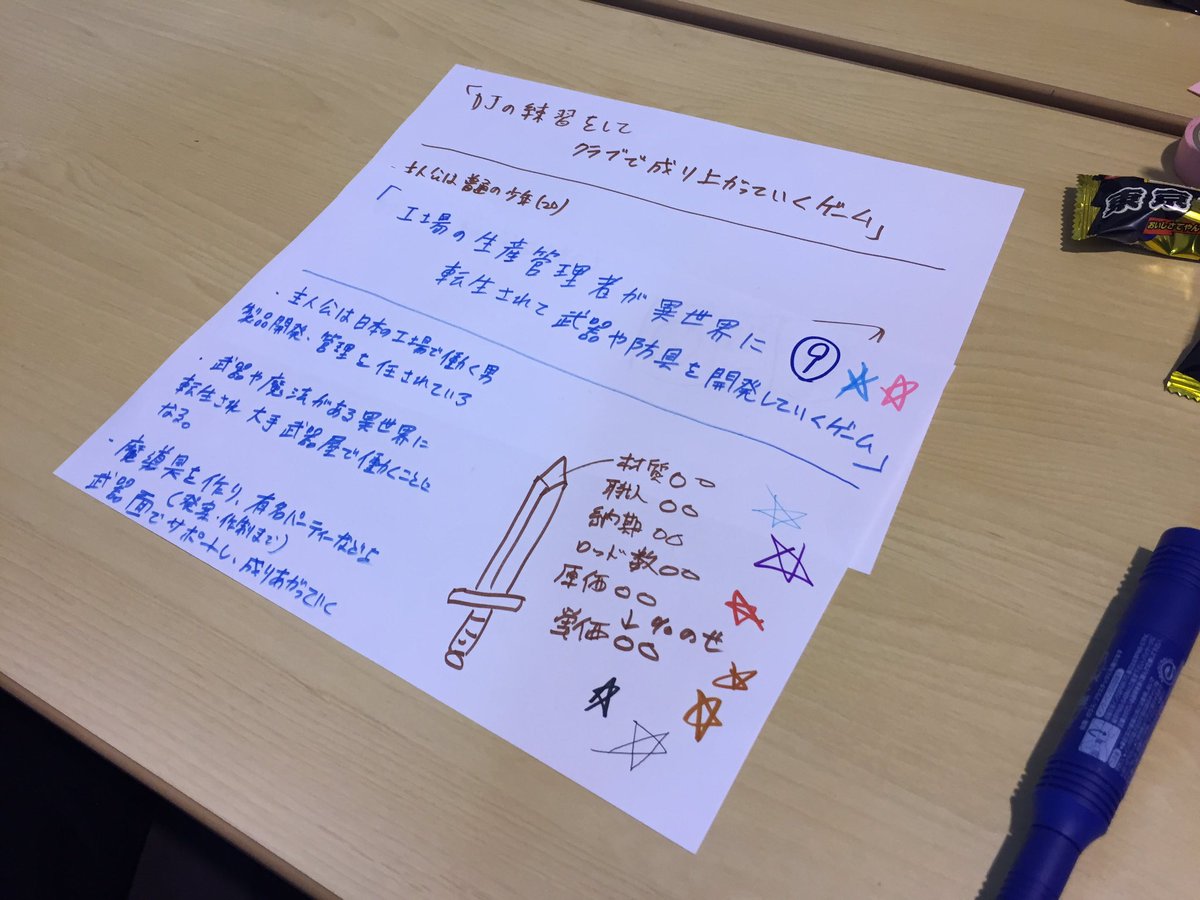 「DJの練習をして
クラブで成り上がっていくゲーム」
・主人公は普通の少年(20)
「工場の生産管理者が異世界に
転生されて武器や防具を開発していくゲーム」
⑨
・主人公は日本の工場で働く男
製品開発、管理を任されている
・武器や魔法がある異世界に
転生され大手武器屋で働くことに
なる。
・魔導具を作り、有名パーティーなどを
(発案・作制まで)
武器面でサポートし、成りあがっていく
材質○○
職人○○
納期○○
ロッド数○○
原価○○
↓%のせ
売価○○
東京
おいしさてやん